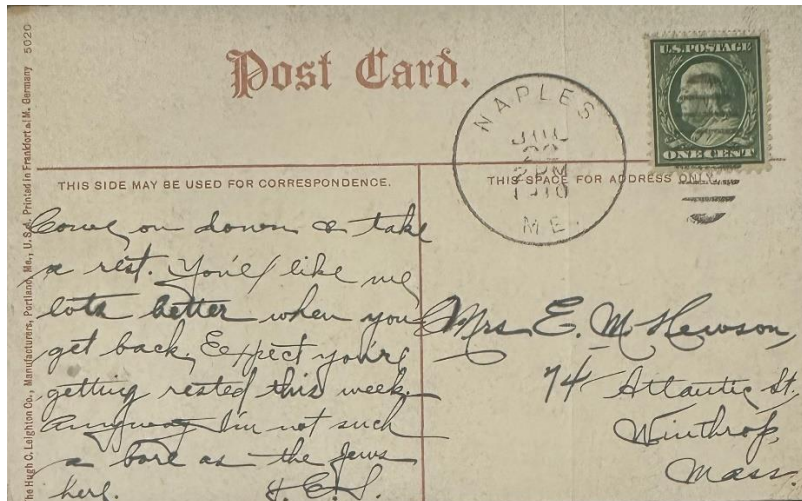 Post Card.
The Hugh C. Leighton Co., Manufacturers, Portland, Me., U.S.A. Printed in Frankfort a/M. Germany 5020
U.S. POSTAGE
ONE CENT
NAPLES
JUL
2 PM
1910
ME.
THIS SIDE MAY BE USED FOR CORRESPONDENCE.
THIS SPACE FOR ADDRESS ONLY.
Come on down & take
a rest. You'll like me
lots better when you
get back. Expect you're
getting rested this week.
Anyway I'm not such
a bore as the Jews
here. E.S.
Mrs E. M Hewson,
74 Atlantic St.
Winthrop,
Mass.